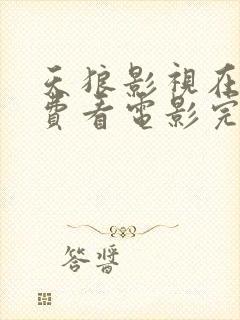 天狼影視在
費看電影完
答醬